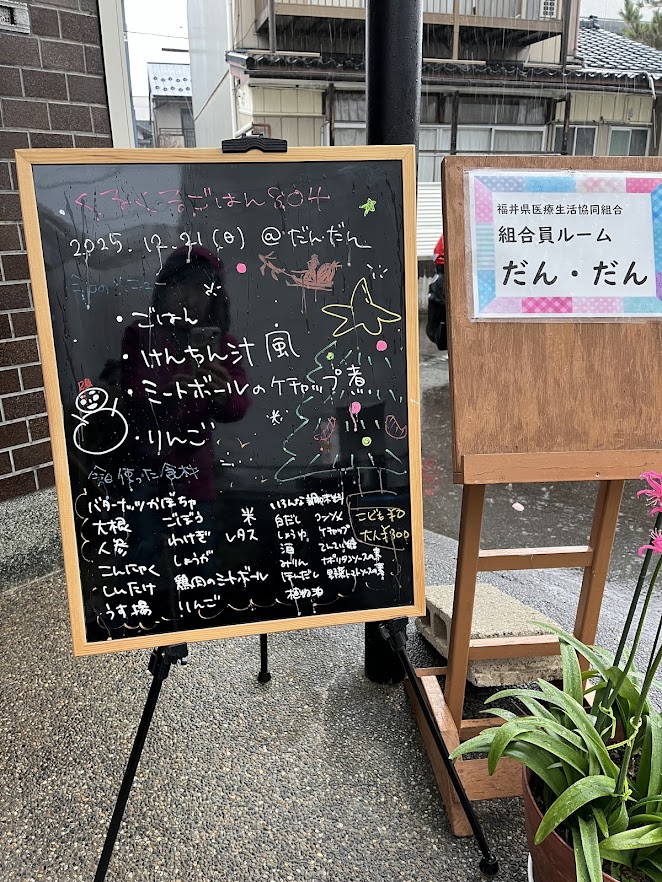 ごはん804
2025.12.21(日) @だんだん
今日のメニュー
・ごはん
・けんちん汁風
・ミートボールのケチャップ煮
・りんご
今日使った食材
バターナッツかぼちゃ
大根
人参
こんにゃく
しいたけ
うす揚
ごぼう
ねぎ
しょうが
鶏肉のミートボール
りんご
米
レタス
いろんな調味料
白だし
しょうゆ
酒
みりん
ほんだし
コンソメ
ケチャップ
てんさい糖
ナポリタンソースの素
こども¥0
大人¥300
福井県医療生活協同組合
組合員ルーム
だん・だん